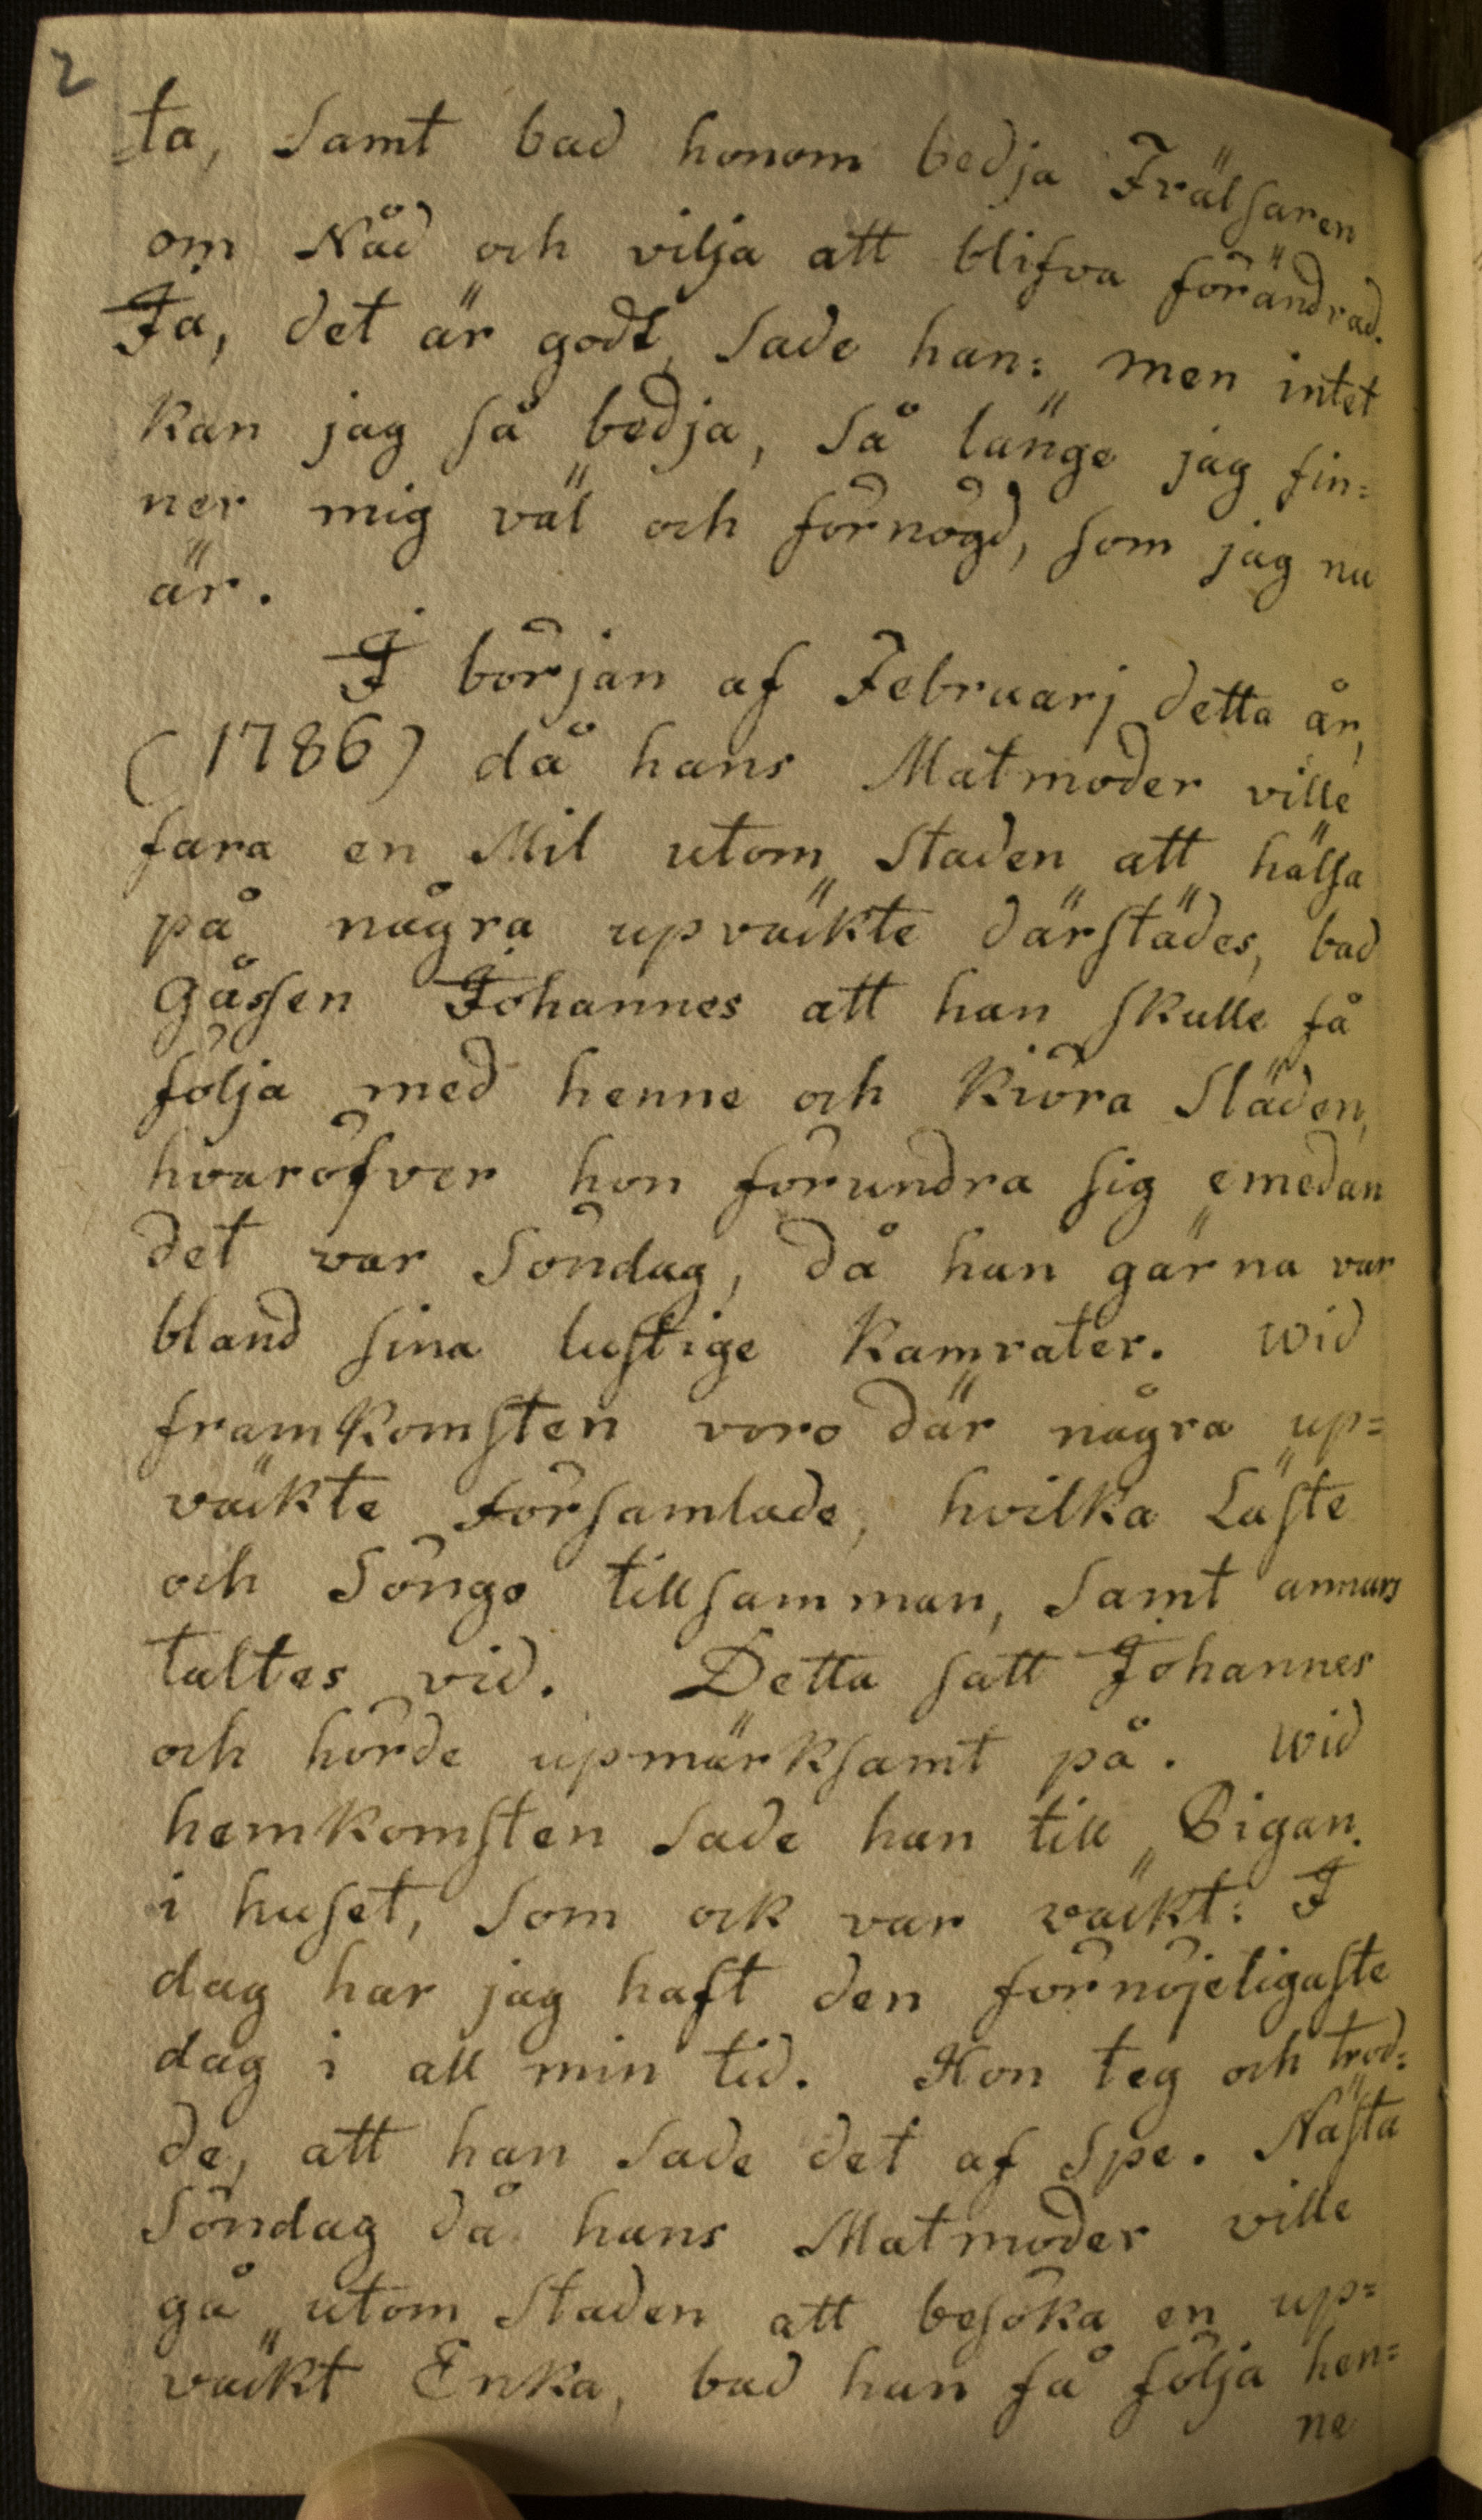 2
ta, samt bad honom bedja Frälsaren
om Nåd och vilja att blifva förändrad.
Ja, det är godt, sade han: men intet
kan jag så bedja, så länge jag fin=
ner mig väl och förnögd, som jag nu
är.
I början af Februarj detta år,
(1786) då hans Matmoder ville
fara en Mil utom staden att hälsa
på några upväckte därstädes, bad
Gåssen Johannes att han skulle få
följa med henne och kiöra släden,
hvaröfver hon förundra sig emedan
det var Söndag, då han gärna var
bland sina lustige Kamrater. Wid
framkomsten voro där några up=
väckte församlade, hvilka Läste
och Söngo tillsamman, samt annars
taltes vid. Detta satt Johannes
och hörde upmärksamt på. Wid
hemkomsten sade han till Pigan
i huset, som ock var väckt: I
dag har jag haft den förnöjeligaste
dag i all min tid. Hon teg och trod=
de, att han sade det af Spe. Nästa
Söndag då hans Matmoder ville
gå utom Staden att besöka en up=
väckt Enka, bad han få följa hen=
ne